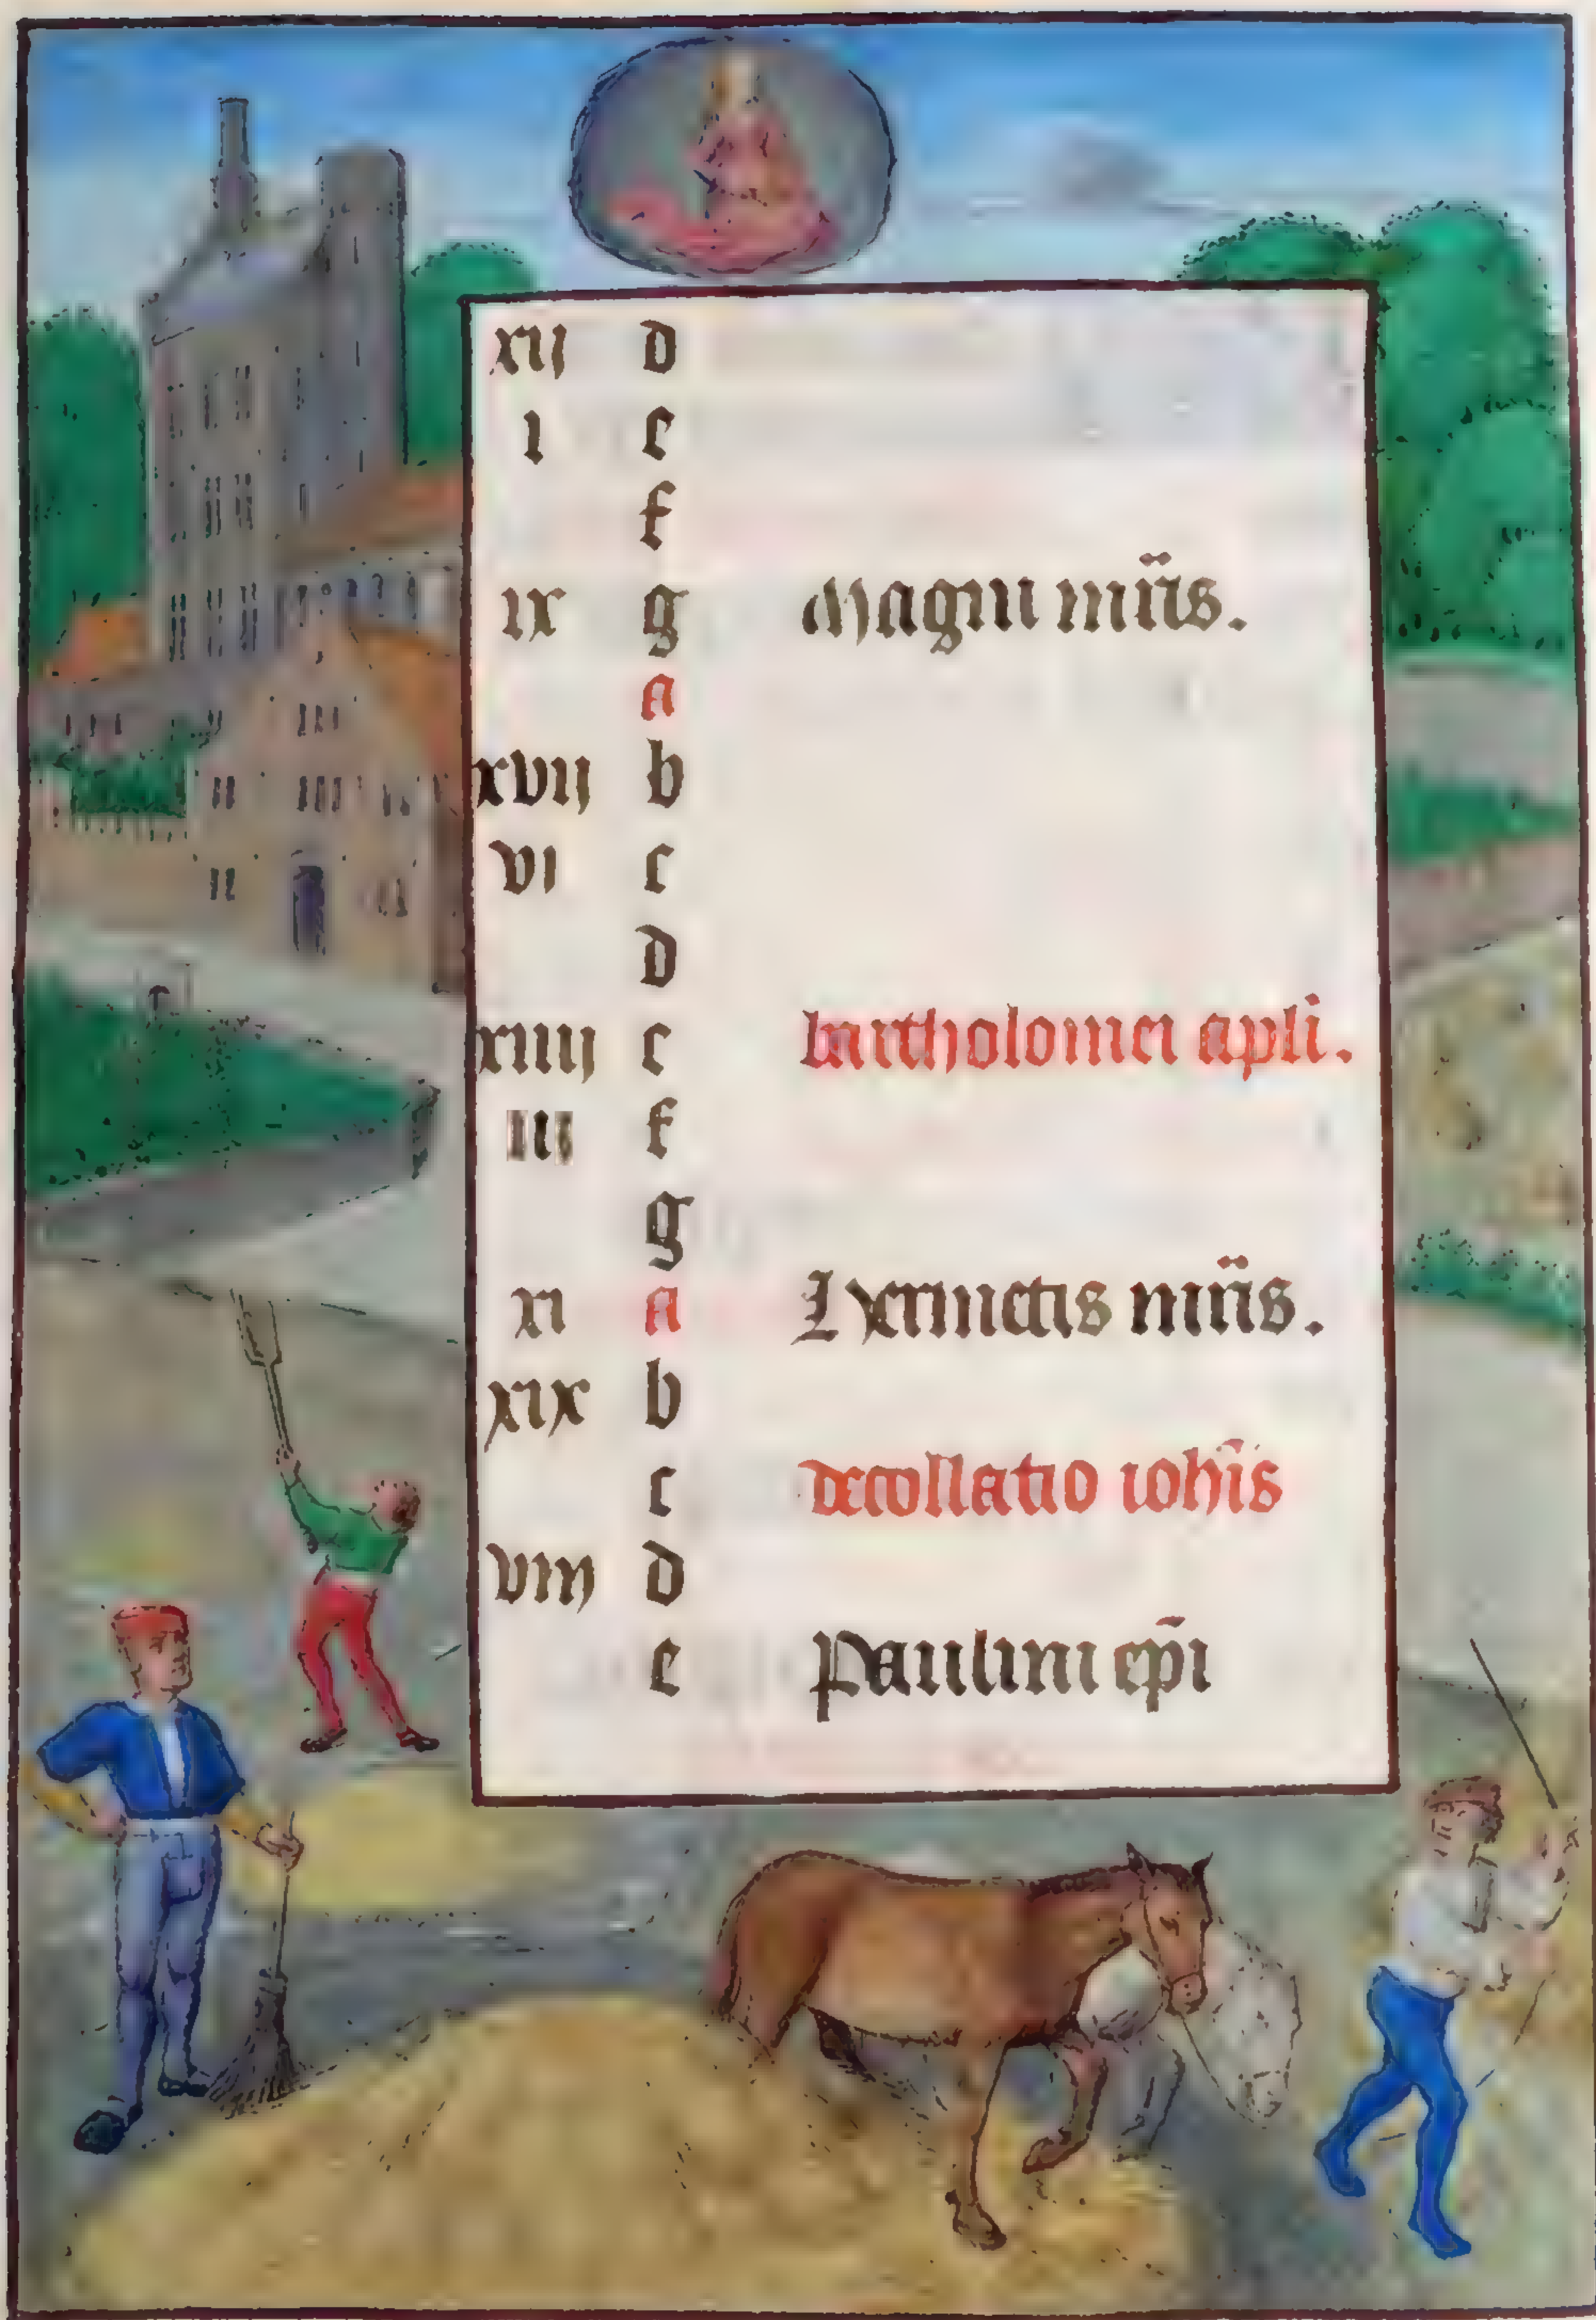 xij d
i e
f
ix g Magni mr̃is.
a
xvij b
vi c
d
xiiij e bartholomei apl̃i.
iij f
g
xi a mr̃is.
xix b
c decollatio ioh̃is
viij d
e Paulini ep̃i